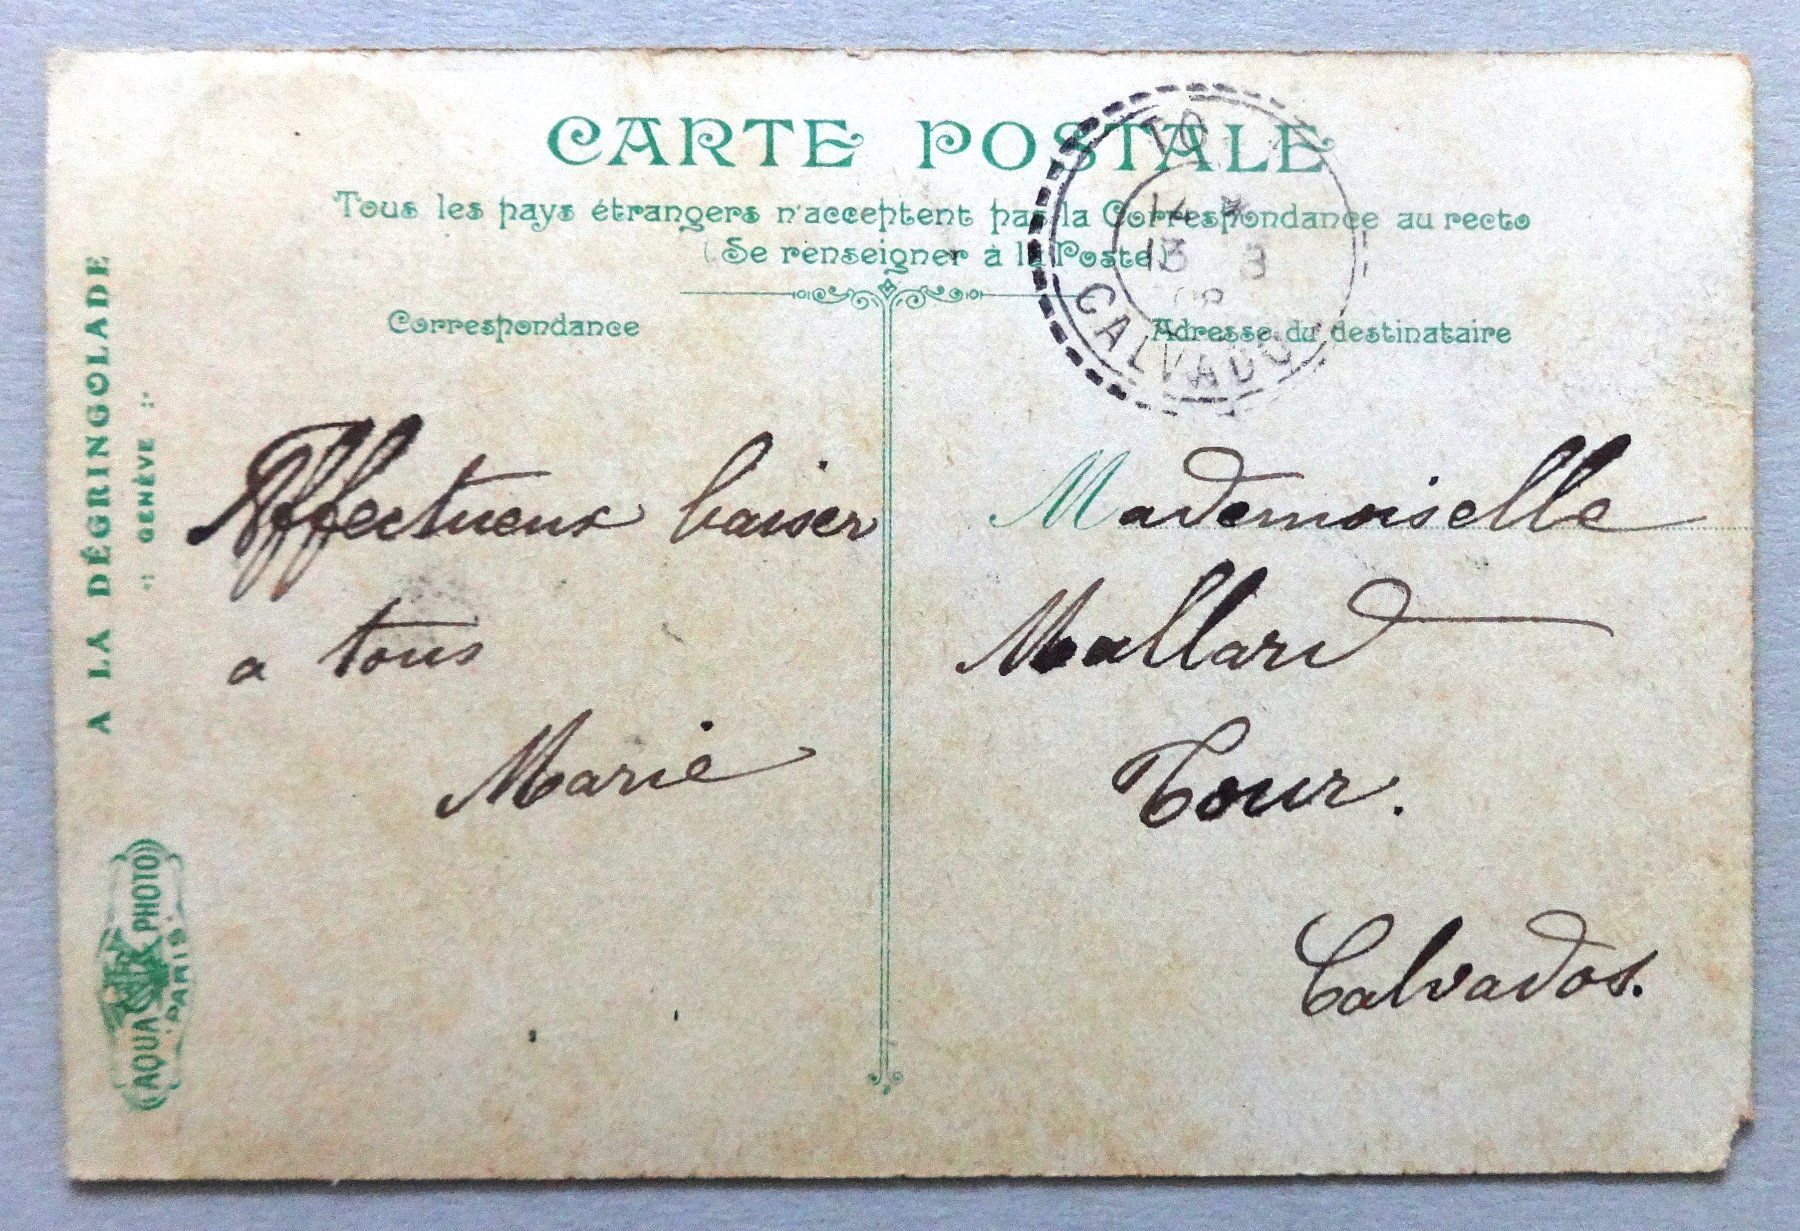 CARTE POSTALE
Tous les pays étrangers n'acceptent pas la Correspondance au recto
(Se renseigner à la Poste)
Correspondance
Adresse du destinataire
Affectueux baiser
a tous
Marie
Mademoiselle
Mallard
Tour.
Calvados.
14
13 8
CALVADOS
A LA DÉGRINGOLADE
:: GENÈVE ::
AQUA PHOTO
PARIS